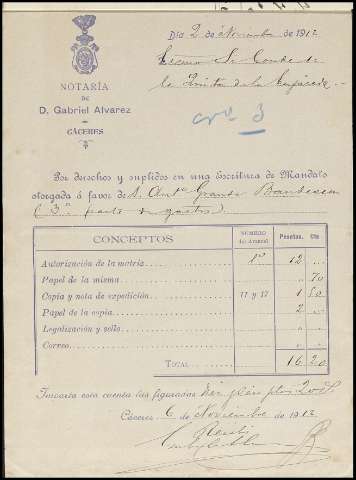 Día 2 de Noviembre de 1912
NOTARÍA
DE
D. Gabriel Alvarez
CÁCERES
Excmo Sr Conde de
la Quinta de la Enjarada
nº 3
Por derechos y suplidos en una Escritura de Mandato
otorgada á favor de D. Antº Grande
(3ª parte de gastos)
CONCEPTOS NÚMERO del Arancel Pesetas. Cts
Autorización de la matriz 1º 12 "
Papel de la misma " 70
Copia y nota de expedición 11 y 17 1 50
Papel de la copia 2 "
Legalización y sello " "
Correo " "
TOTAL 16 20
Importa esta cuenta las figuradas diez y seis ptas 20 cts
Cáceres 6 de Noviembre de 1912
Recibí